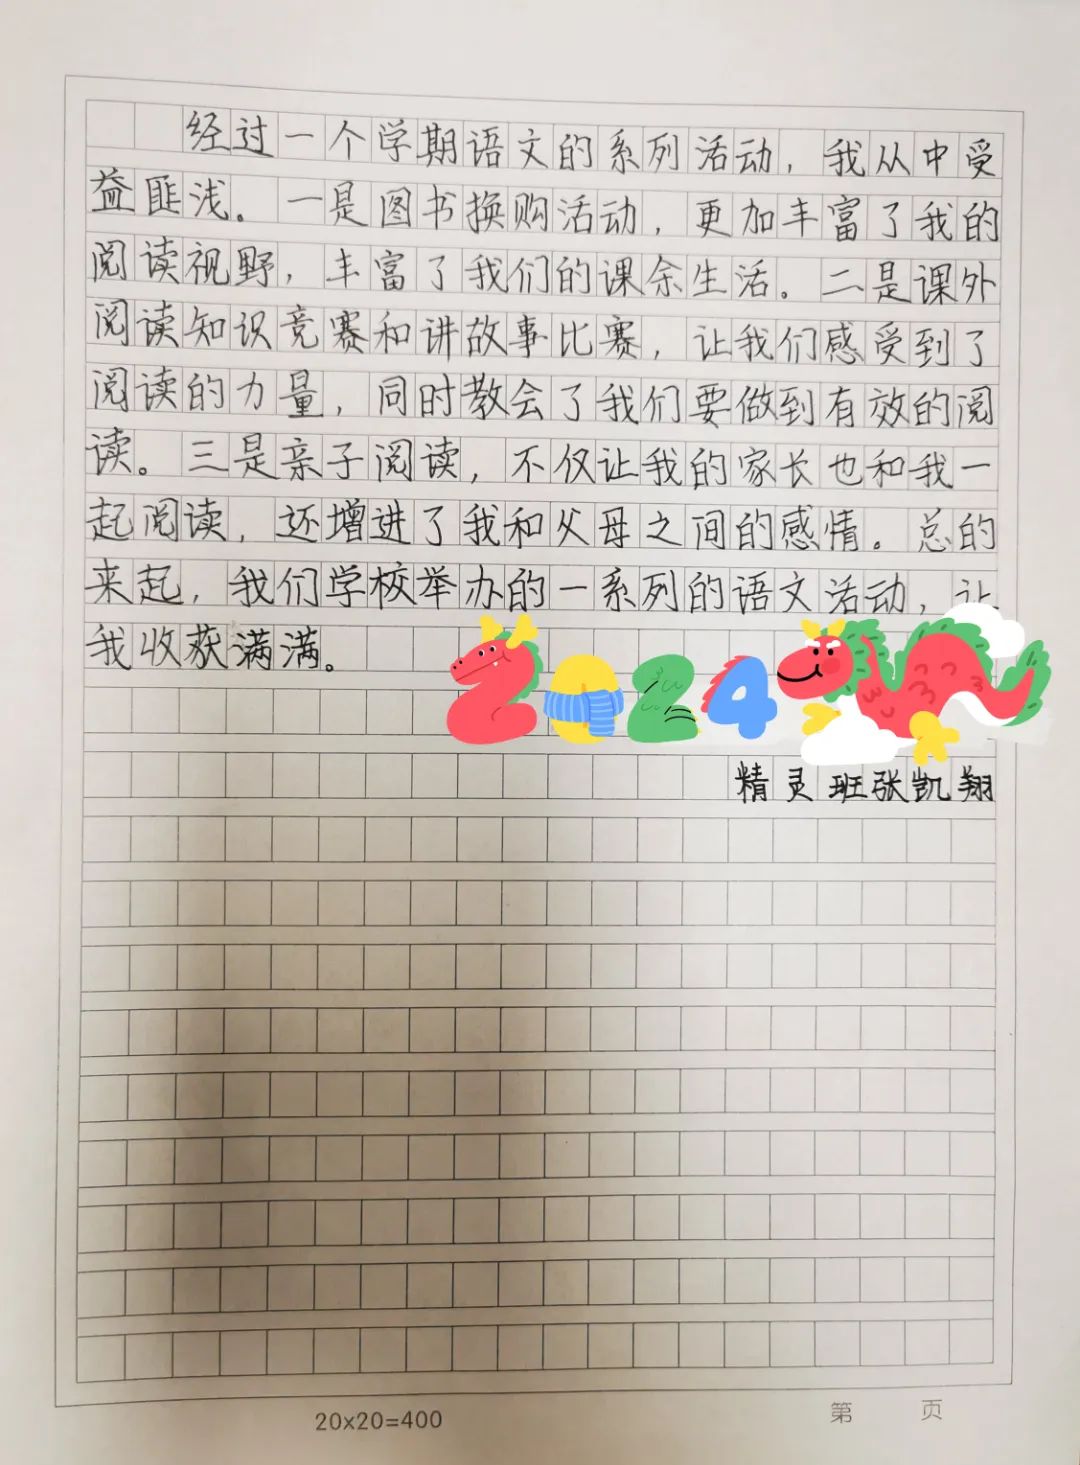 经过一个学期语文的系列活动，我从中受
益匪浅。一是图书换购活动，更加丰富了我的
阅读视野，丰富了我们的课余生活。二是课外
阅读知识竞赛和讲故事比赛，让我们感受到了
阅读的力量，同时教会了我们要做到有效的阅
读。三是亲子阅读，不仅让我的家长也和我一
起阅读，还增进了我和父母之间的感情。总的
来起，我们学校举办的一系列的语文活动，让
我收获满满。
2024
精灵班张凯翔
20x20=400
第 页